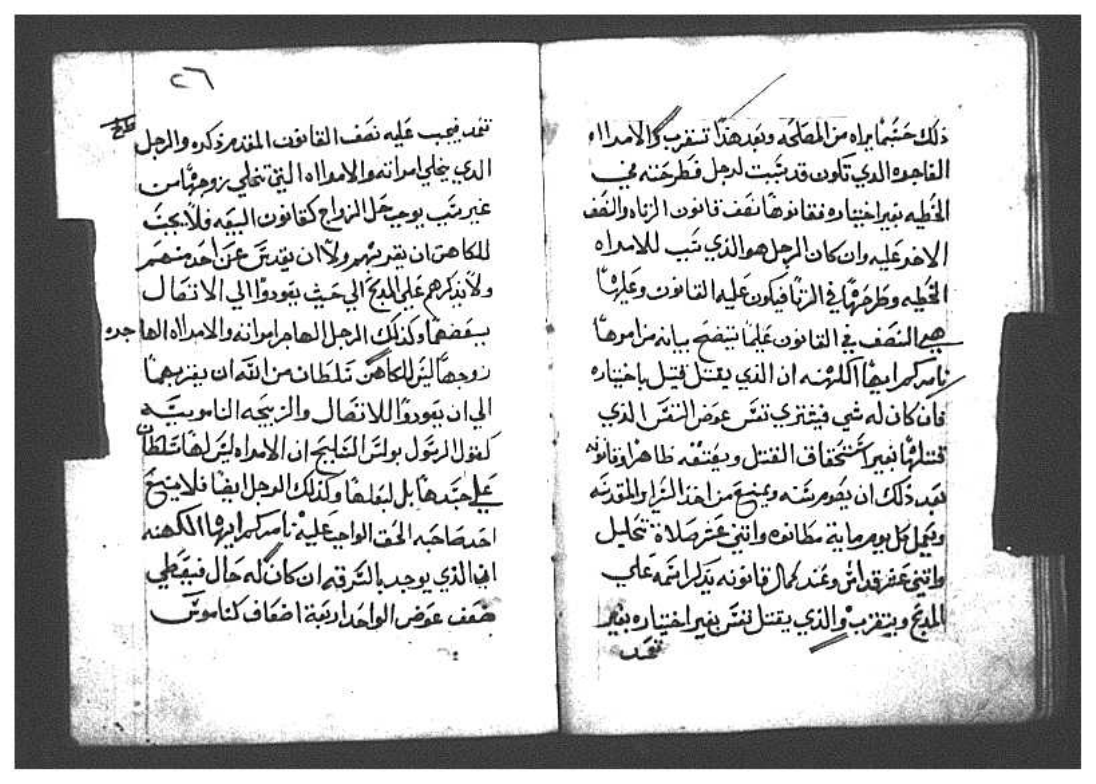 ذلك حسبما يراه من المصلحه وبعد هذا تتقرب والامراه
الفاجره الدي تكون قد تبت لرجل فطرحته في
الخطيه بغير اختياره فقانونها نصف قانون الزناه والنصف
الاخر عليه وان كان الرجل هو الذي تبب للامراه
الخطيه وطرحها في الزنا فيكون عليه القانون وعليها
هي النصف في القانون علما يتضح بيانه من امرها
نامركم ايها الكهنه ان الذي يقتل قتيل باختياره
فان كان له شي فيشتري نفس عوض النفس الذي
قتلها بغير استحقاف القتل ويعتقه ظاهرا وقانونه
بعد ذلك ان يصوم سنه ويمنع من اخذ السراير المقدسه
ويعمل كل يوم ماية مطانوه واتني عشر صلاة تحليل
واتني عشر قداس وعند كمال قانونه يذكر اسمه علي
المدبح ويتقرب والذي يقتل نفس بغير اختياره بغير
تعمد
٢٦
تعمد فيجب عليه نصف القانون المقدم ذكره والرجل
الدي يخلي امراته والامراه التي تخلي زوجها من
غير سبب يوجب حل الزواج كقانون البيعه فلا يجب
للكاهن ان يقربهم ولا ان يقدس عن احد منهم
ولا يذكرهم علي المدبح الي حيث يعودوا الي الاتصال
ببعضها وكذلك الرجل الهاجر امراته والامراه الهاجره
زوجها ليس للكاهن سلطان من الله ان يقربهما
الي ان يعودوا للاتصال والزيجه الناموسيه
كقول الرسول بولس السليح ان الامراه ليس لها سلطان
علي جسدها بل لبعلها وكذلك الرجل ايضا فلا يمنع
احد صاحبه الحق الواجب عليه نامركم ايها الكهنه
ان الذي يوجد بالسرقه ان كان له حال فيعطي
ضعف عوض الواحد اربعة اضعاف كناموس